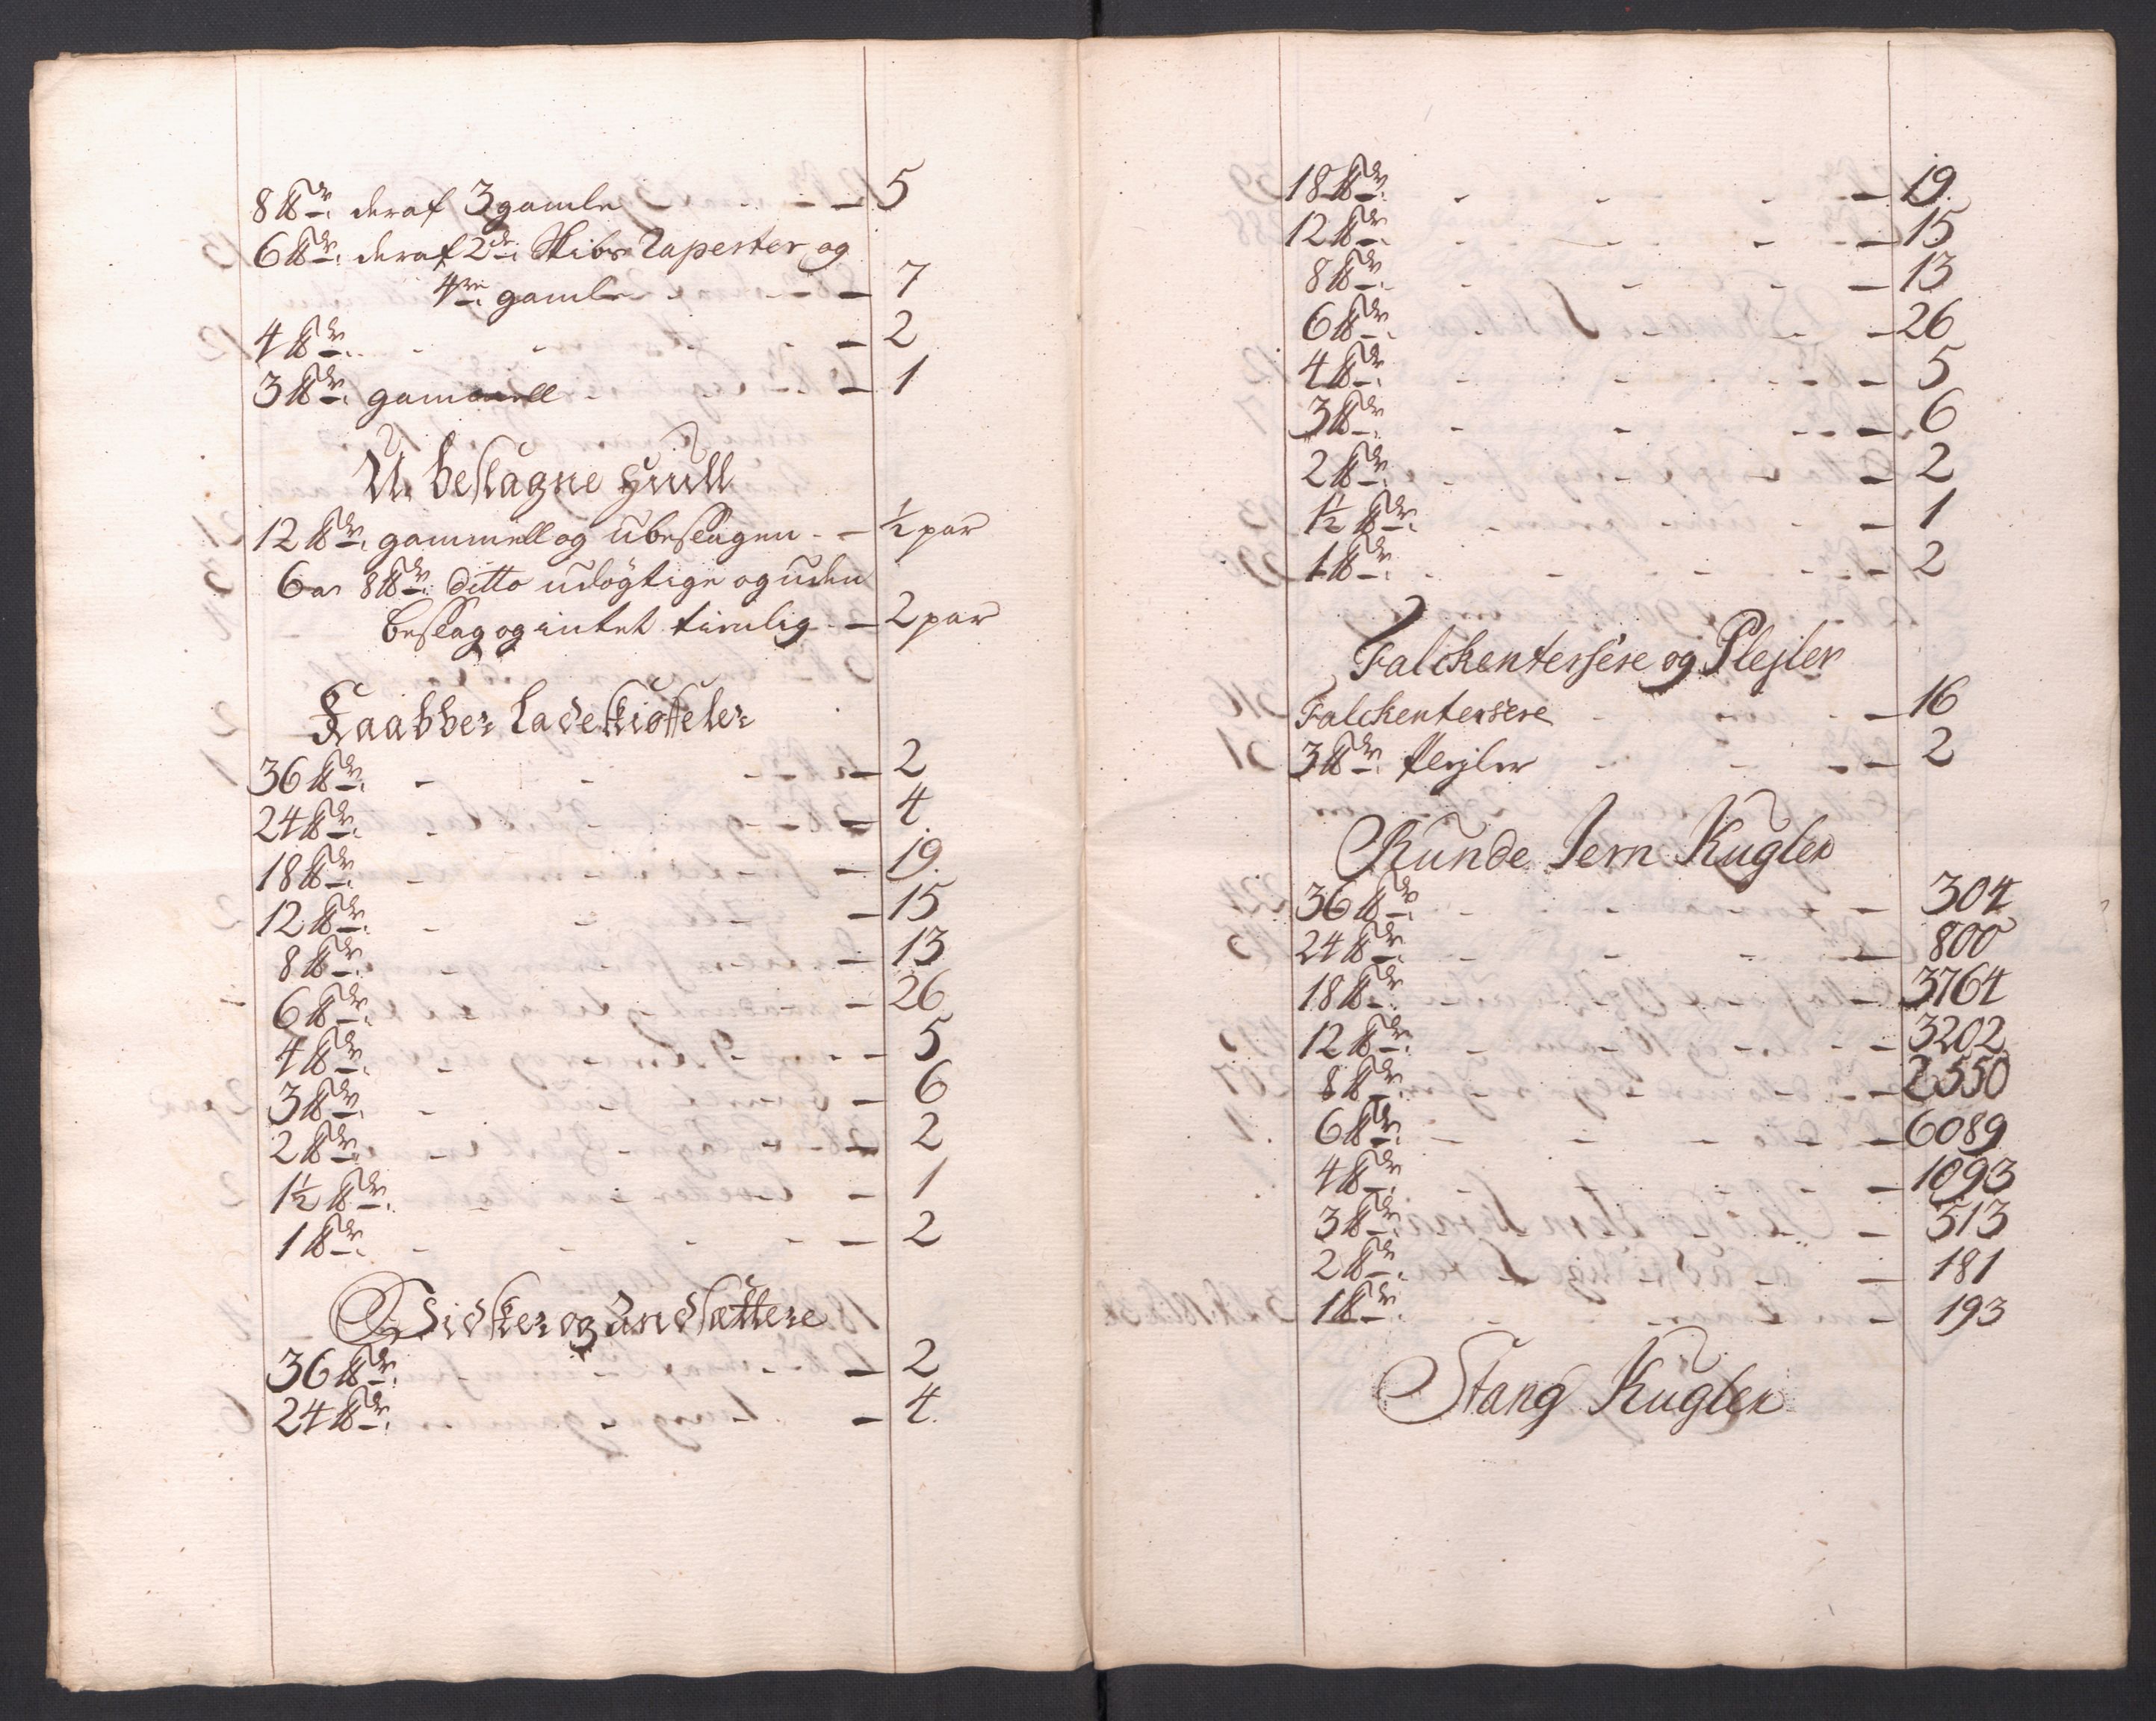 8 ℔dr deraf 3 gamle - - - 5
6 ℔dr deraf 2de Skibs Raperter og
4re gamle - - - 7
4 ℔dr - - - 2
3 ℔dr gammell - - - 1
U beslagne Hiull
12 ℔dr gammell og ubeslagen - - ½ par
6 a 8 ℔dr ditto udögtige og uden
beslag og intet tienlig - 2 par
Kaabber Ladeskioffeler
36 ℔dr - - - 2
24 ℔dr - - - 4
18 ℔dr - - - 19
12 ℔dr - - - 15
8 ℔dr - - - 13
6 ℔dr - - - 26
4 ℔dr - - - 5
3 ℔dr - - - 6
2 ℔dr - - - 2
1½ ℔dr - - - 1
1 ℔dr - - - 2
Vidsker og Andsættere
36 ℔dr - - - 2
24 ℔dr - - - 4
18 ℔dr - - - 19
12 ℔dr - - - 15
8 ℔dr - - - 13
6 ℔dr - - - 26
4 ℔dr - - - 5
3 ℔dr - - - 6
2 ℔dr - - - 2
1½ ℔dr - - - 1
1 ℔dr - - - 2
Falckentersere og Plejler
Falckentersere - - - 16
3 ℔dr Plejler - - - 2
Runde Jern Kugler
36 ℔dr - - - 304
24 ℔dr - - - 800
18 ℔dr - - - 3764
12 ℔dr - - - 3202
8 ℔dr - - - 2550
6 ℔dr - - - 6089
4 ℔dr - - - 1093
3 ℔dr - - - 513
2 ℔dr - - - 181
1 ℔dr - - - 193
Stang Kugler